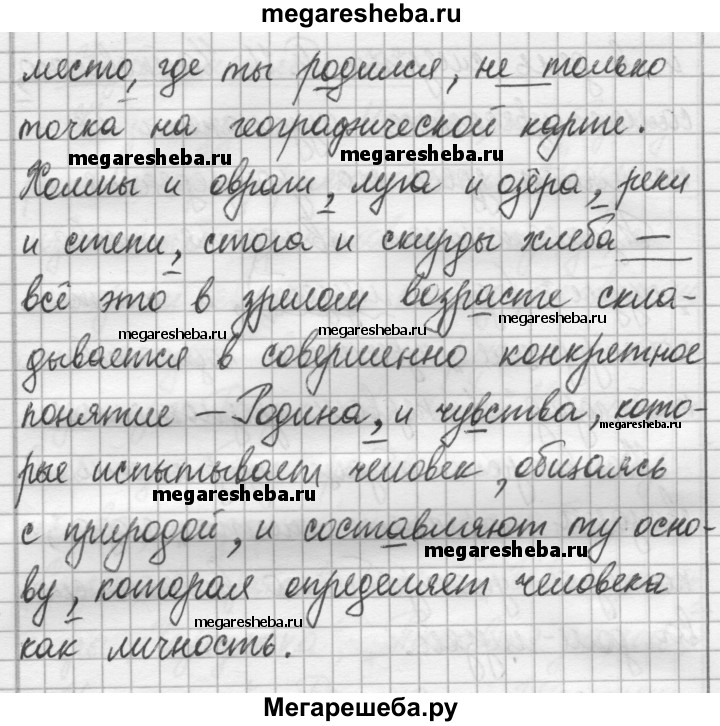 megaresheba.ru
место, где ты родился, не только
точка на географической карте.
megaresheba.ru megaresheba.ru
Холмы и овраги, луга и озёра, реки
и степи, стога и скирды хлеба —
всё это в зрелом возрасте скла-
megaresheba.ru megaresheba.ru
дывается в совершенно конкретное
понятие – Родина, и чувства, кото-
megaresheba.ru megaresheba.ru
рые испытывает человек, общаясь
megaresheba.ru
с природой, и составляют ту осно-
megaresheba.ru
ву, которая определяет человека
megaresheba.ru
как личность.
Мегарешеба.ру